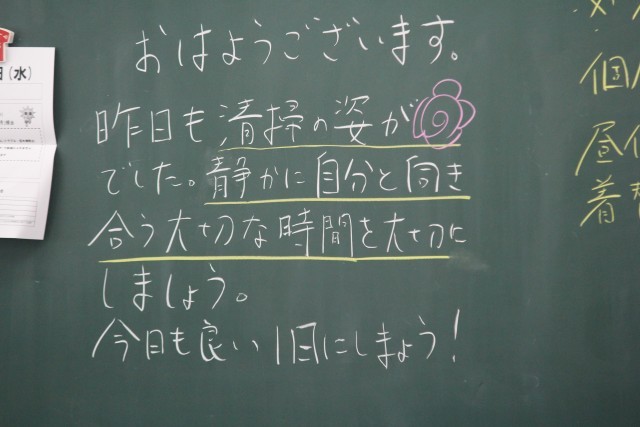 おはようございます。
昨日も清掃の姿が
でした。静かに自分と向き
合う大切な時間を大切に
しましょう。
今日も良い1日にしましょう!
(水)
個
昼休
着替